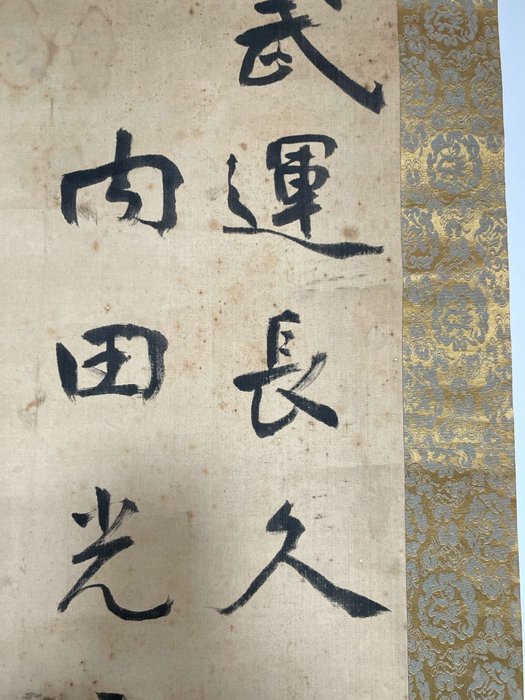 武運長久
内田光